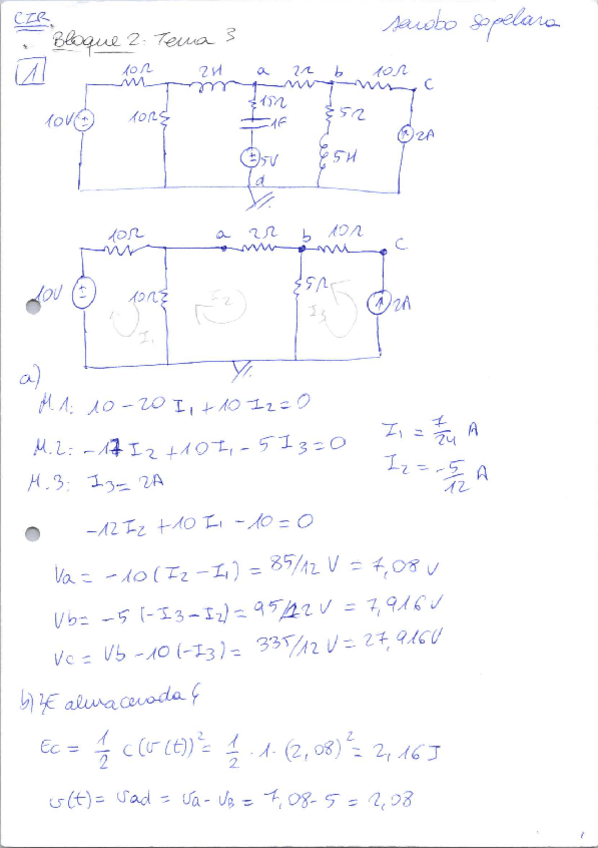 CIR.
Bloque 2: Tema 3
1
10Ω 2H a 2Ω b 10Ω c
10V 10Ω 15Ω 1F 5V d 5Ω 5H 2A
10Ω a 2Ω b 10Ω c
10V 10Ω I1 I2 5Ω I3 2A
a)
M.1: 10 - 20 I1 + 10 I2 = 0
M.2: -17 I2 + 10 I1 - 5 I3 = 0
I1 = 7/24 A
M.3: I3 = 2A
I2 = -5/12 A
-12 I2 + 10 I1 - 10 = 0
Va = -10 (I2 - I1) = 85/12 V = 7,08 V
Vb = -5 (-I3 - I2) = 95/12 V = 7,916 V
Vc = Vb - 10 (-I3) = 335/12 V = 27,916 V
b) ¿E almacenada?
Ec = 1/2 C (v(t))² = 1/2 · 1 · (2,08)² = 2,16 J
v(t) = Vad = Va - VB = 7,08 - 5 = 2,08